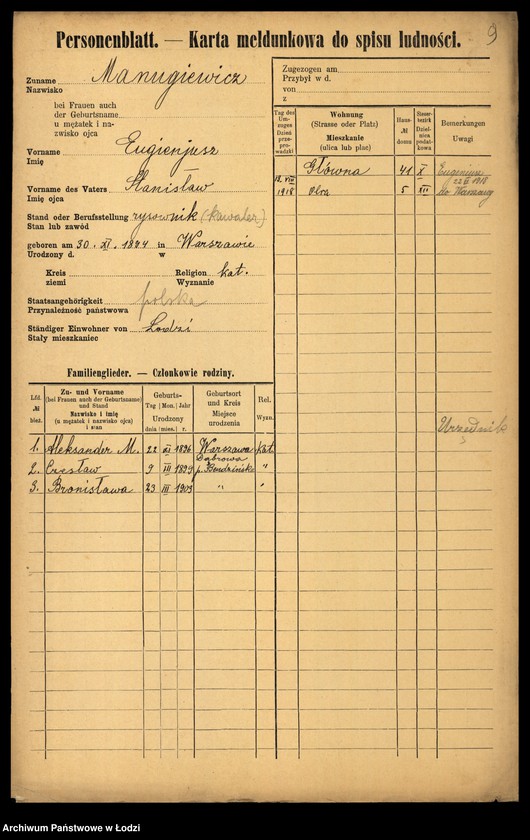 9
Personenblatt. — Karta meldunkowa do spisu ludności.
Zuname Manugiewicz
Nazwisko
bei Frauen auch
der Geburtsname
u mężatek i na-
zwisko ojca
Vorname Eugienjusz
Imię
Vorname des Vaters Stanisław
Imię ojca
Stand oder Berufsstellung rysownik (kawaler)
Stan lub zawód
geboren am 30. XI. 1874 in Warszawie
Urodzony d. w
Kreis Religion kat.
ziemi Wyznanie
Staatsangehörigkeit polska
Przynależność państwowa
Ständiger Einwohner von Łodzi
Stały mieszkaniec
Familienglieder. — Członkowie rodziny.
Lfd. № bież.
Zu- und Vorname
(bei Frauen auch der Geburtsname)
und Stand
Nazwisko i imię
(u mężatek i nazwisko ojca)
i stan
Geburts-
Tag Mon. Jahr
Urodzony
dnia mies. r.
Geburtsort
und Kreis
Miejsce
urodzenia
Rel.
Wyzn.
1. Aleksander M. 22 XI 1896 Warszawa kat.
2. Czesław 9 III 1899 Dąbrowa p. Bendzińsk "
3. Bronisława 23 III 1903 " "
Zugezogen am
Przybył w d.
von
z
Tag des Um-
zuges
Dzień
prze-
prowadzki
Wohnung
(Strasse oder Platz)
Mieszkanie
(ulica lub plac)
Haus-
№
domu
Steuer-
bezirk
Dziel-
nica
podat-
kowa
Bemerkungen
Uwagi
Główna 41 X Eugeniusz
22 II 1918
do Warszawy
18. VIII 1918 5 XII
Urzędnik
Archiwum Państwowe w Łodzi